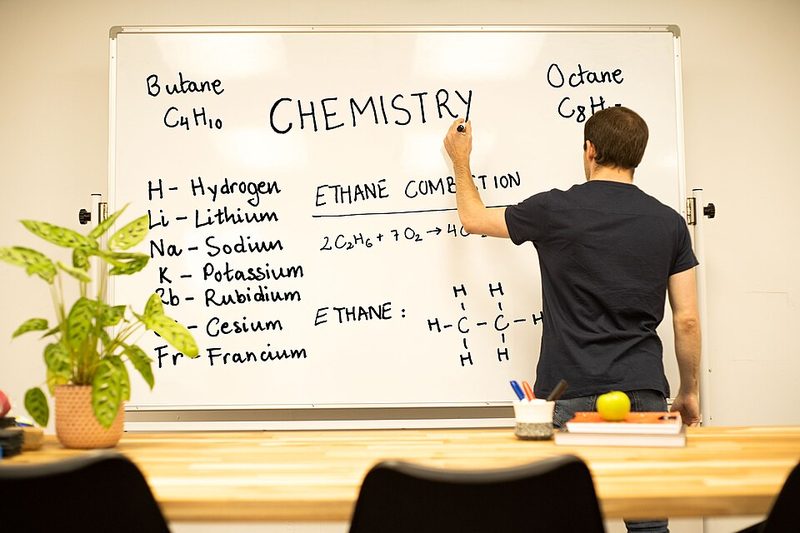 Butane
C₄H₁₀
CHEMISTRY
Octane
C₈H
H - Hydrogen
Li - Lithium
Na - Sodium
K - Potassium
Rb - Rubidium
- Cesium
Fr - Francium
ETHANE COMBUSTION
2C₂H₆ + 7O₂ → 4C
ETHANE :
H H
H - C - C - H
H H